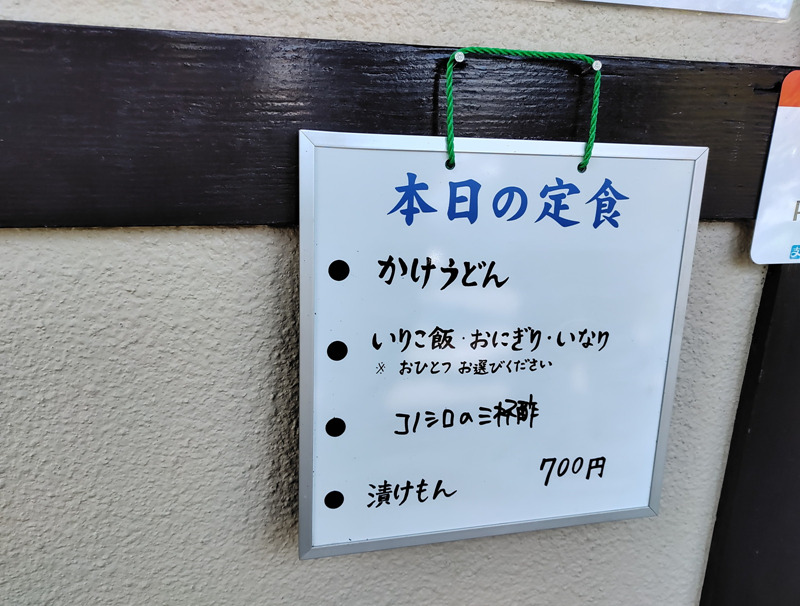 本日の定食
● かけうどん
● いりこ飯・おにぎり・いなり
※ おひとつ お選びください
● コノシロの三杯酢
● 漬けもん
700円